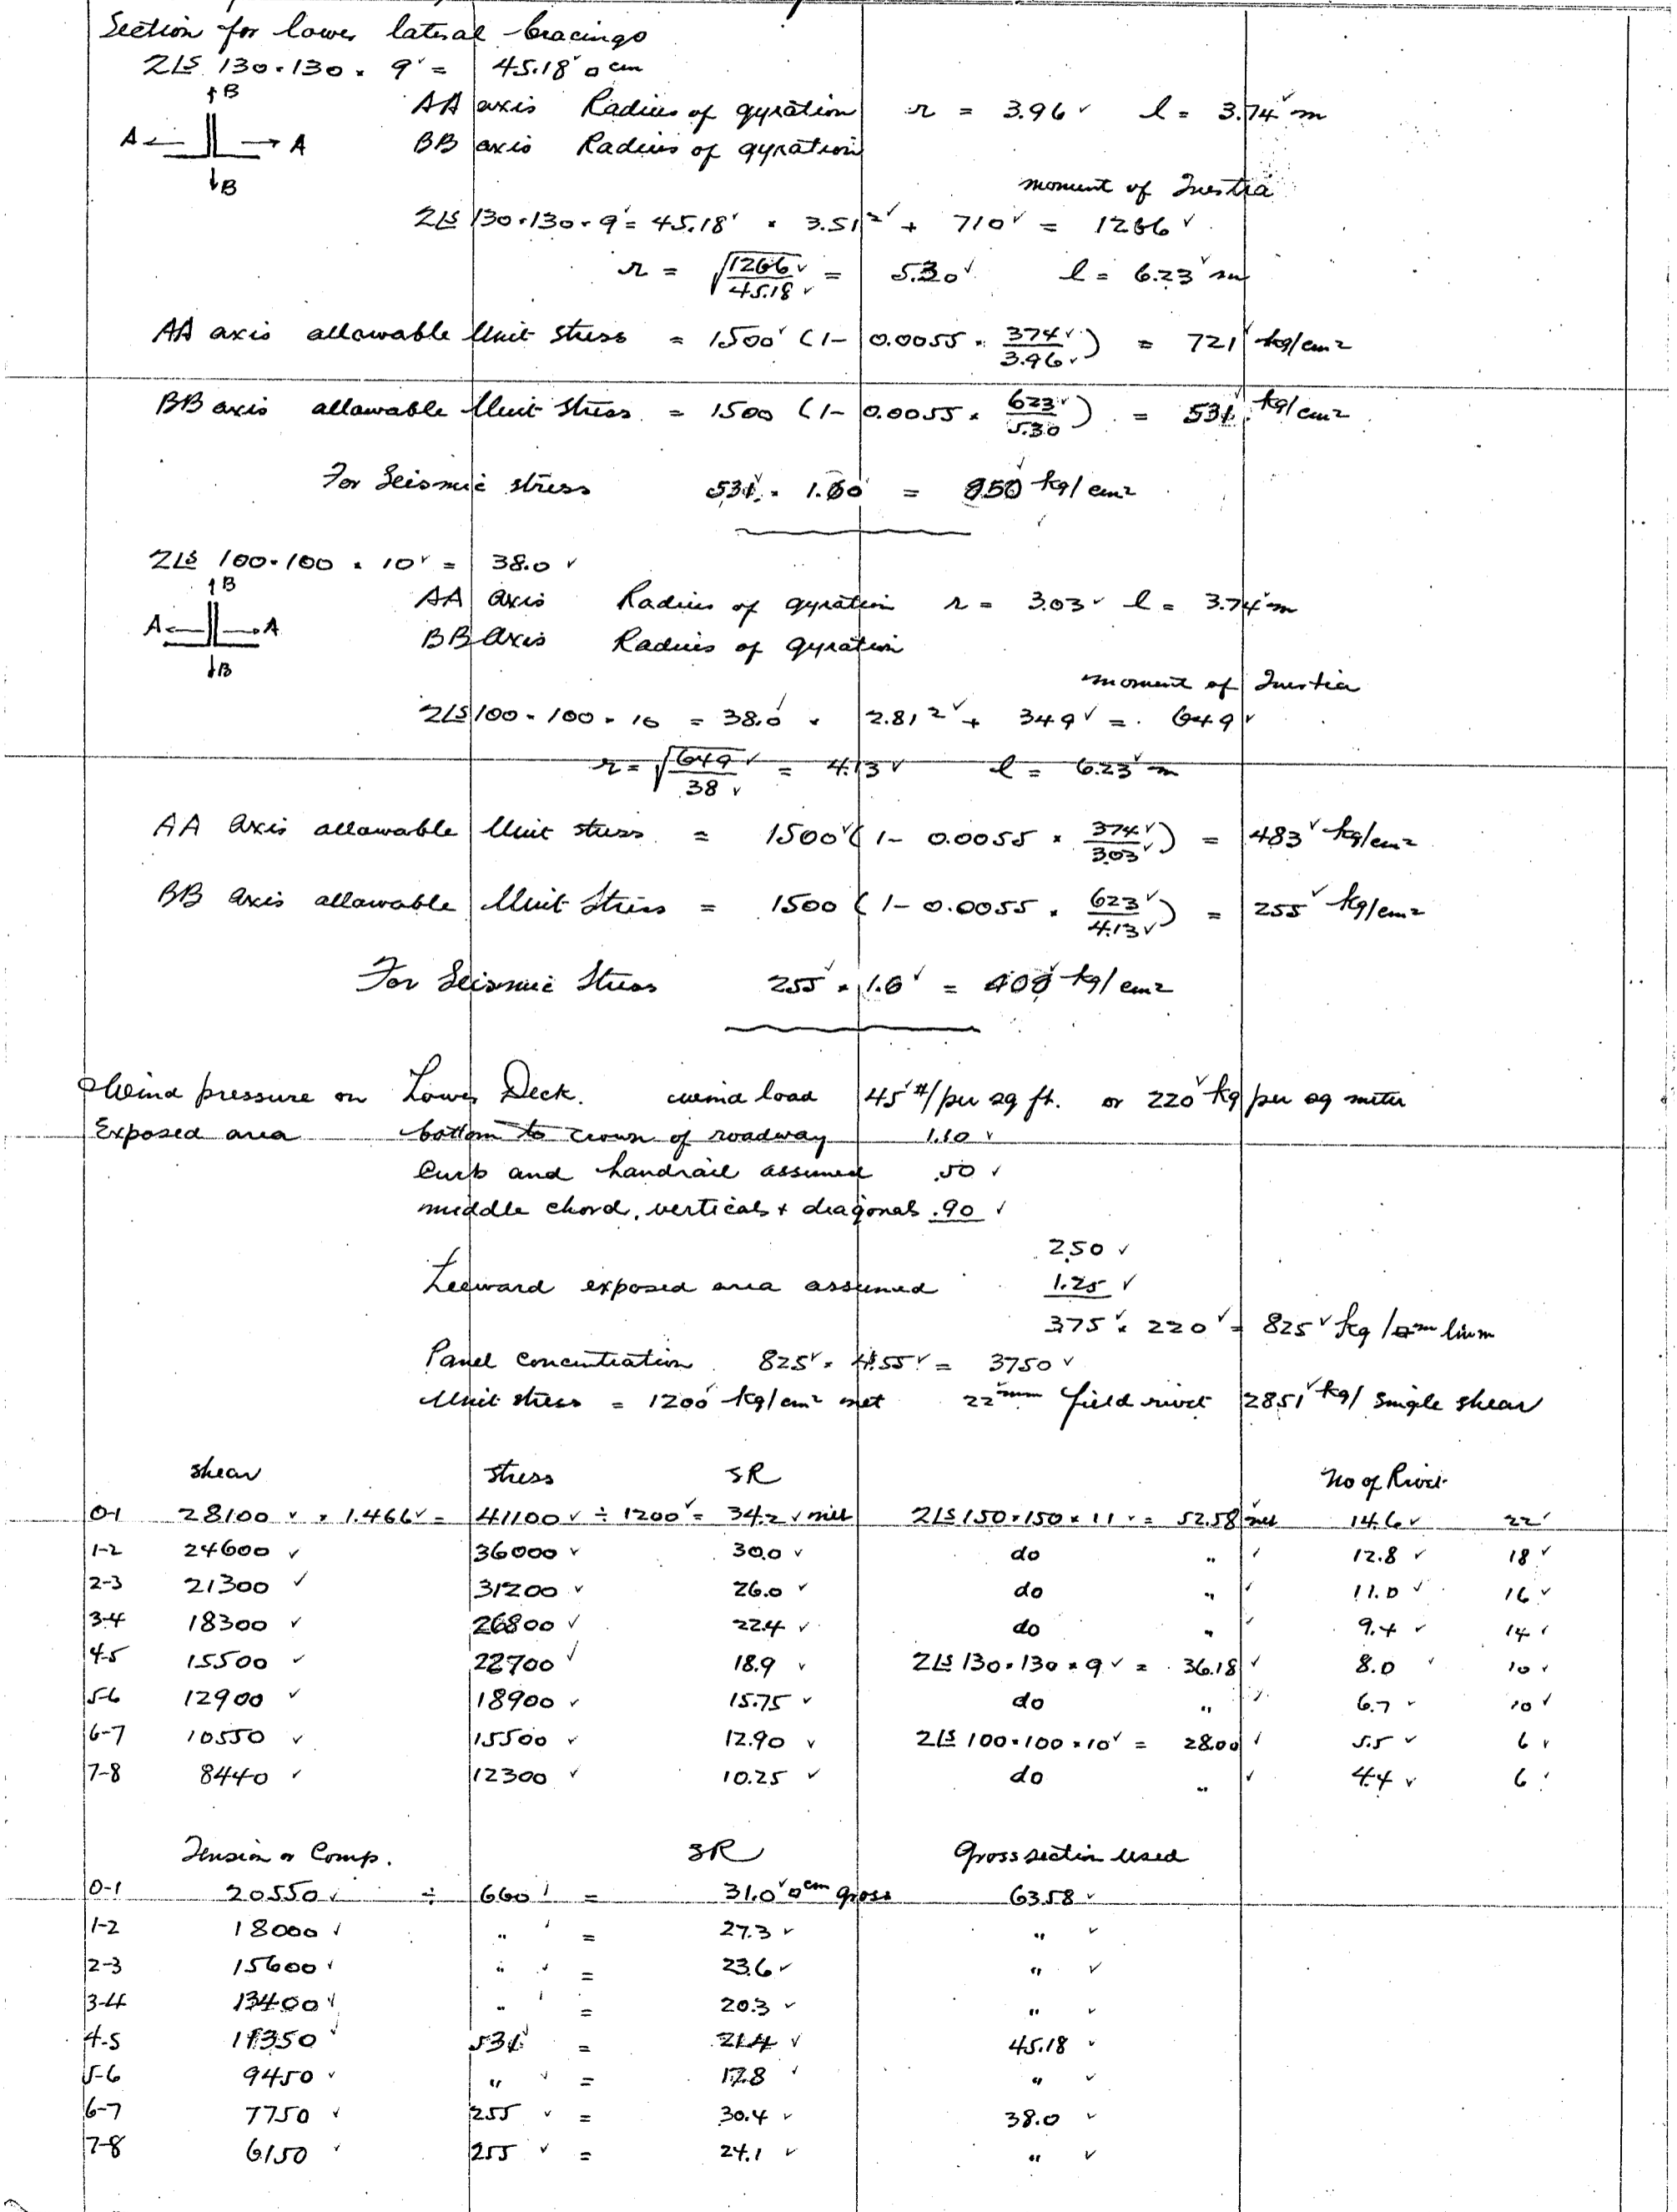 Section for lower lateral bracings
2Ls 130·130 × 9 = 45.18 □cm
B
AA axis Radius of gyration r = 3.96 l = 3.74 m
A A
BB axis Radius of gyration
B
moment of Inertia
2Ls 130·130·9 = 45.18 × 3.51² + 710 = 1266
r = √1266/45.18 = 5.30 l = 6.23 m
AA axis allowable Unit stress = 1500 (1- 0.0055 × 374/3.96) = 721 kg/cm2
BB axis allowable Unit Stress = 1500 (1- 0.0055 × 623/5.30) = 531 kg/cm2
For Seismic stress 531 × 1.60 = 850 kg/cm2
2Ls 100·100 × 10 = 38.0
B
AA axis Radius of gyration r = 3.03 l = 3.74 m
A A
BB axis Radius of gyration
B
moment of Inertia
2Ls 100·100·10 = 38.0 × 2.81² + 349 = 649
r = √649/38 = 4.13 l = 6.23 m
AA axis allowable Unit stress = 1500 (1- 0.0055 × 374/3.03) = 483 kg/cm2
BB axis allowable Unit Stress = 1500 (1- 0.0055 × 623/4.13) = 255 kg/cm2
For Seismic Stress 255 × 1.6 = 408 kg/cm2
Wind pressure on Lower Deck. wind load 45#/per sq ft. or 220 kg per sq meter
Exposed area bottom to crown of roadway 1.10
Curb and handrail assumed .50
middle chord, verticals + diagonals .90
2.50
Leeward exposed area assumed 1.25
3.75 × 220 = 825 kg/m
Panel concentration 825 × 4.55 = 3750
Unit stress = 1200 kg/cm² net 22mm field rivet 2851 kg/ single shear
Shear Stress SR No of Rivet
0-1 28100 × 1.466 = 41100 ÷ 1200 = 34.2 net 2Ls 150·150 × 11 = 52.58 net 14.6 22
1-2 24600 36000 30.0 do " 12.8 18
2-3 21300 31200 26.0 do " 11.0 16
3-4 18300 26800 22.4 do " 9.4 14
4-5 15500 22700 18.9 2Ls 130·130 × 9 = 36.18 8.0 10
5-6 12900 18900 15.75 do " 6.7 10
6-7 10550 15500 12.90 2Ls 100·100 × 10 = 28.00 5.5 6
7-8 8440 12300 10.25 do " 4.4 6
Tension or Comp. SR Gross section used
0-1 20550 ÷ 660 = 31.0 □cm gross 63.58
1-2 18000 " = 27.3 "
2-3 15600 " = 23.6 "
3-4 13400 " = 20.3 "
4-5 11350 531 = 21.4 45.18
5-6 9450 " = 17.8 "
6-7 7750 255 = 30.4 38.0
7-8 6150 255 = 24.1 "